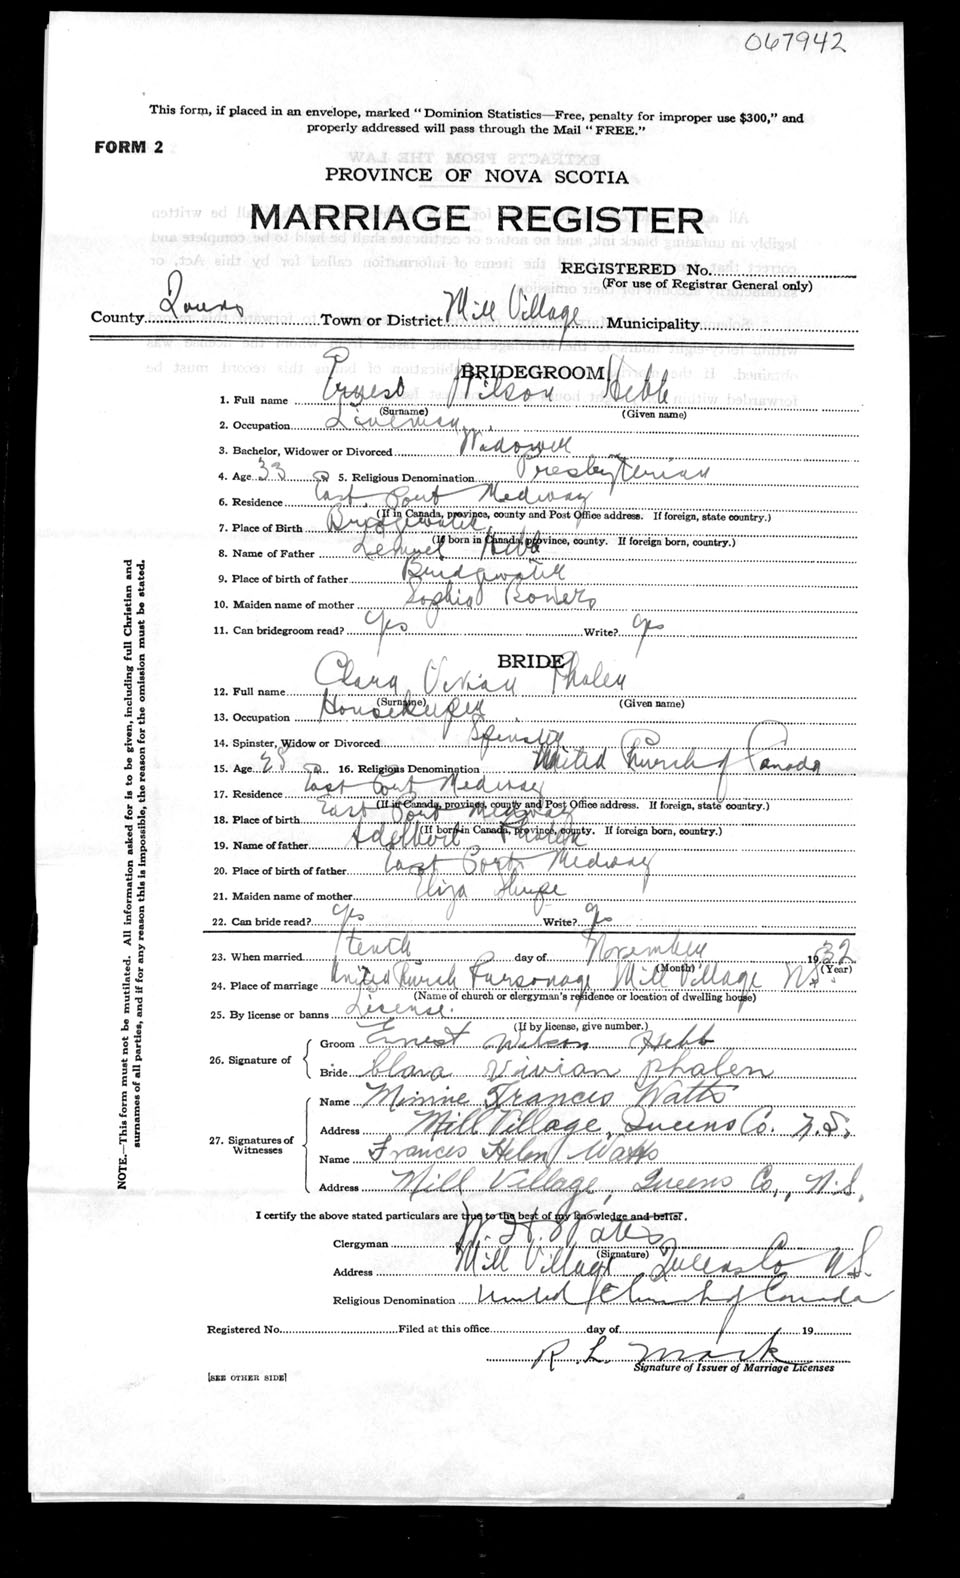 067942
This form, if placed in an envelope, marked "Dominion Statistics—Free, penalty for improper use $300," and
properly addressed will pass through the Mail "FREE."
FORM 2
PROVINCE OF NOVA SCOTIA
MARRIAGE REGISTER
REGISTERED No.
(For use of Registrar General only)
County Queens Town or District Mill Village Municipality
BRIDEGROOM
1. Full name Ernest Wilson Hebb
(Surname) (Given name)
2. Occupation Lineman
3. Bachelor, Widower or Divorced Widower
4. Age 33 5. Religious Denomination Presbyterian
6. Residence East Port Medway
(If in Canada, province, county and Post Office address. If foreign, state country.)
7. Place of Birth Bridgewater
(If born in Canada, province, county. If foreign born, country.)
8. Name of Father Lemuel Hebb
9. Place of birth of father Bridgewater
10. Maiden name of mother Sophia
11. Can bridegroom read? Yes Write? Yes
BRIDE
12. Full name Clara Vivian Phalen
(Surname) (Given name)
13. Occupation Housekeeper
14. Spinster, Widow or Divorced Spinster
15. Age 28 16. Religious Denomination United Church of Canada
17. Residence East Port Medway
(If in Canada, province, county and Post Office address. If foreign, state country.)
18. Place of birth East Port Medway
(If born in Canada, province, county. If foreign born, country.)
19. Name of father Adelbert Phalen
20. Place of birth of father East Port Medway
21. Maiden name of mother Eliza
22. Can bride read? Yes Write? Yes
23. When married tenth day of November 1932
(Month) (Year)
24. Place of marriage United Church Parsonage Mill Village NS.
(Name of church or clergyman's residence or location of dwelling house)
25. By license or banns License.
(If by license, give number.)
26. Signature of Groom Ernest Wilson Hebb
Bride Clara Vivian Phalen
27. Signatures of Witnesses Name Minnie Frances Watts
Address Mill Village, Queens Co. N.S.
Name Frances Helen Watts
Address Mill Village, Queens Co., N.S.
I certify the above stated particulars are true to the best of my knowledge and belief.
Clergyman W. H. Watts
(Signature)
Address Mill Village Queens Co N.S.
Religious Denomination United Church of Canada
Registered No. Filed at this office day of 19
R. L. Mack
Signature of Issuer of Marriage Licenses
[SEE OTHER SIDE]
NOTE.—This form must not be mutilated. All information asked for is to be given, including full Christian and
surnames of all parties, and if for any reason this is impossible, the reason for the omission must be stated.